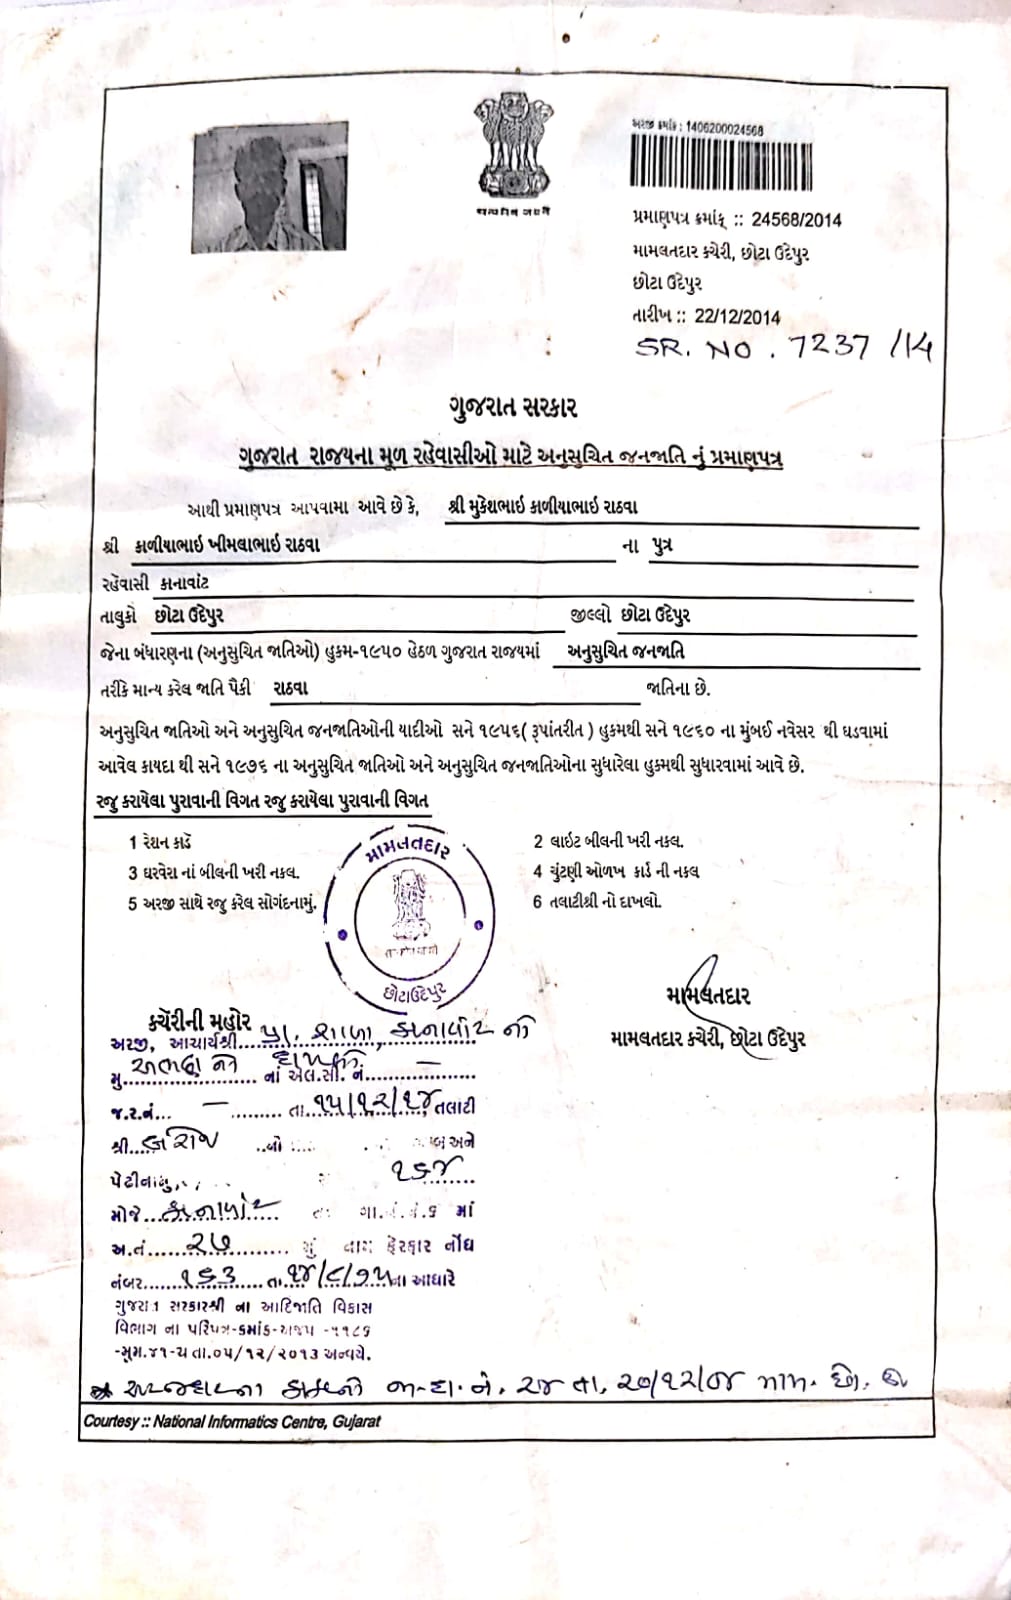 અરજી ક્રમાંક : 1406200024568
सत्यमेव जयते
પ્રમાણપત્ર ક્રમાંક :: 24568/2014
મામલતદાર કચેરી, છોટા ઉદેપુર
છોટા ઉદેપુર
તારીખ :: 22/12/2014
SR. NO. 7237 /14
ગુજરાત સરકાર
ગુજરાત રાજયના મૂળ રહેવાસીઓ માટે અનુસુચિત જનજાતિ નું પ્રમાણપત્ર
આથી પ્રમાણપત્ર આપવામા આવે છે કે, શ્રી મુકેશભાઇ કાળીયાભાઇ રાઠવા
શ્રી કાળીયાભાઇ ખીમલાભાઇ રાઠવા ના પુત્ર
રહેવાસી કાનાવાંટ
તાલુકો છોટા ઉદેપુર જીલ્લો છોટા ઉદેપુર
જેના બંધારણના (અનુસુચિત જાતિઓ) હુકમ-૧૯૫૦ હેઠળ ગુજરાત રાજયમાં અનુસુચિત જનજાતિ
તરીકે માન્ય કરેલ જાતિ પૈકી રાઠવા જાતિના છે.
અનુસુચિત જાતિઓ અને અનુસુચિત જનજાતિઓની યાદીઓ સને ૧૯૫૬( રૂપાંતરીત ) હુકમથી સને ૧૯૬૦ ના મુંબઈ નવેસર થી ઘડવામાં
આવેલ કાયદા થી સને ૧૯૭૬ ના અનુસુચિત જાતિઓ અને અનુસુચિત જનજાતિઓના સુધારેલા હુકમથી સુધારવામાં આવે છે.
રજુ કરાયેલા પુરાવાની વિગત રજુ કરાયેલા પુરાવાની વિગત
1 રેશન કાર્ડ 2 લાઇટ બીલની ખરી નકલ.
3 ઘરવેરા નાં બીલની ખરી નકલ. 4 ચુંટણી ઓળખ કાર્ડ ની નકલ
5 અરજી સાથે રજુ કરેલ સોગંદનામું. 6 તલાટીશ્રી નો દાખલો.
મામલતદાર
છોટાઉદેપુર
મામલતદાર
મામલતદાર કચેરી, છોટા ઉદેપુર
કચેરીની મહોર
અરજી, આચાર્યશ્રી પ્રા. શાળા, કનાવાંટ ની
મુ. નાં એલ.સી. નં. —
જ.ર.નં... — તા. ૧૫/૧૨/૧૪ તલાટી
શ્રી અને
૧૬૪
મોજે કનાવાંટ માં
અ.નં. ૨૭ નામ ફેરફાર નોંધ
નંબર ૧૬૩ તા. ૧૪/૮/૭૫ ના આધારે
ગુજરાત સરકારશ્રી ના આદિજાતિ વિકાસ
વિભાગ ના પરિપત્ર-ક્રમાંક-અજપ -૧૧૮૬
-મૂમ.૪૧-ચ તા.૦૫/૧૨/૨૦૧૩ અન્વયે.
અરજદારના કાકાનો તા. ૨૭/૧૨/
Courtesy :: National Informatics Centre, Gujarat